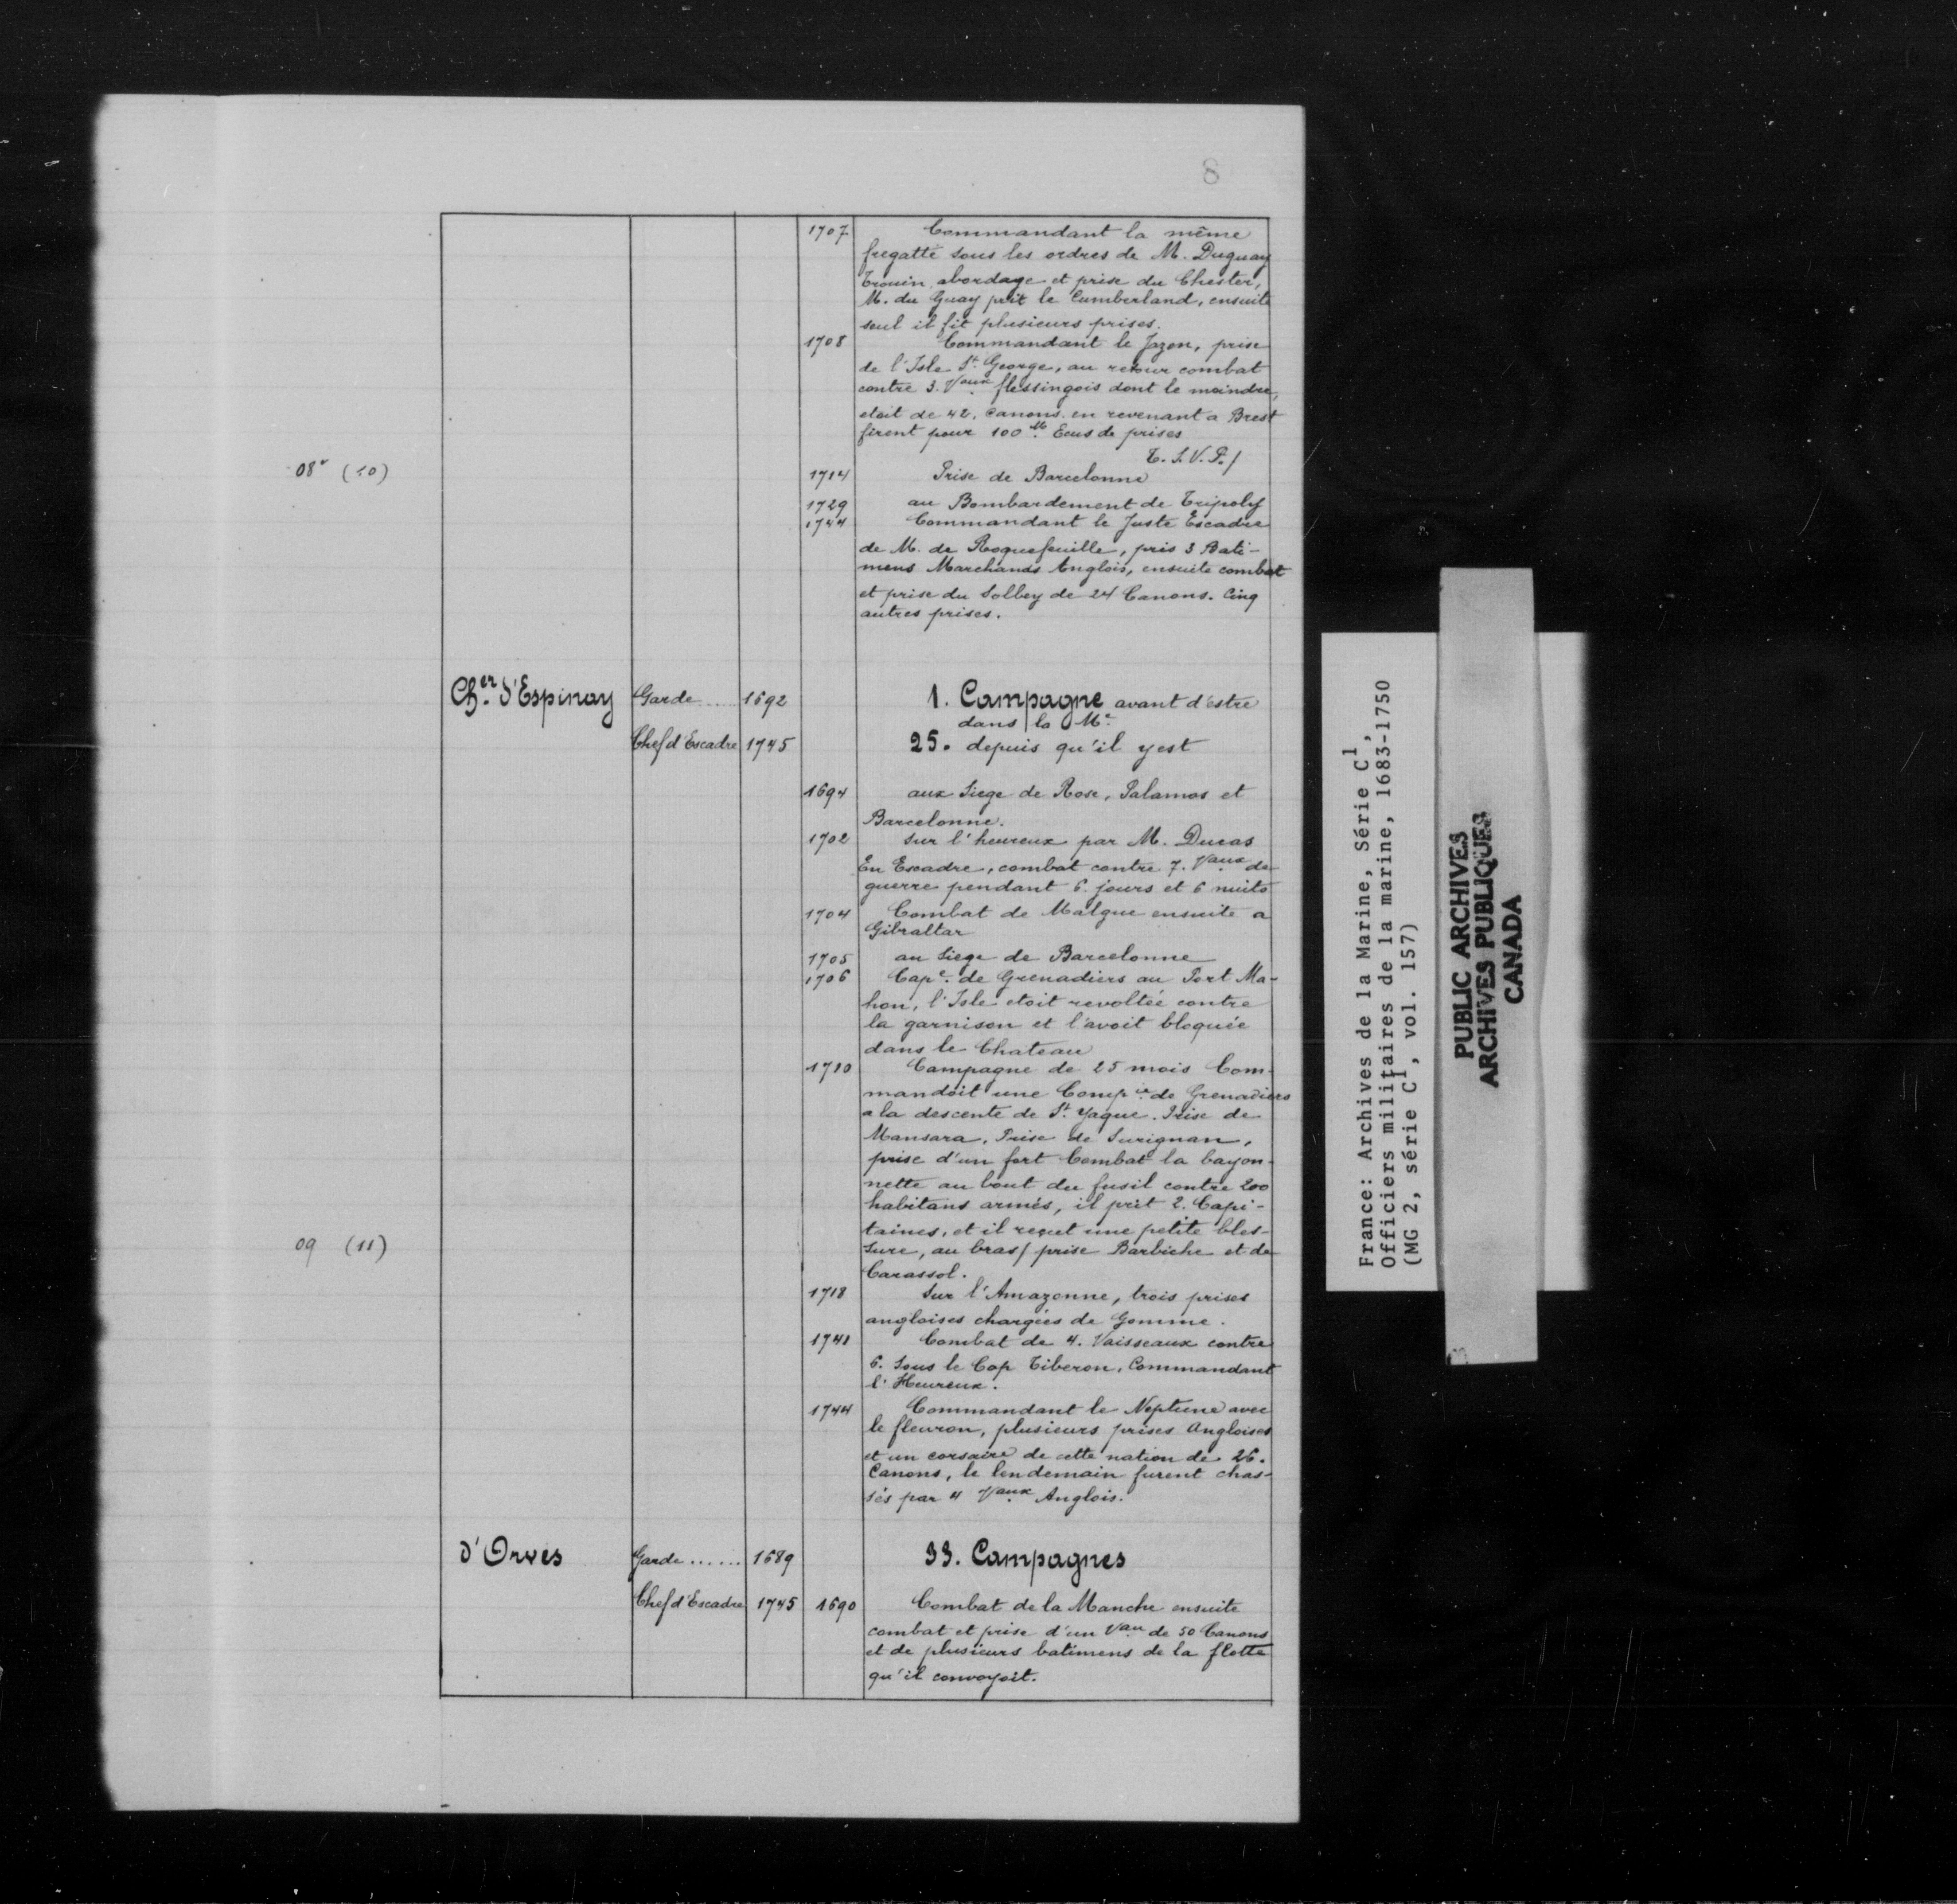 8
1707 Commandant la même
fregatte sous les ordres de M. Duguay
Trouin, abordage et prise du Chester,
M. du Guay prit le Cumberland, ensuite
seul il fit plusieurs prises.
1708 Commandant le Jazon, prise
de l'Isle St. George, au retour combat
contre 3. Vaux. flessingois dont le moindre,
etoit de 42. canons. en revenant a Brest
firent pour 100 M. Ecus de prises
T. S. V. P./
08v (10)
1714 Prise de Barcelonne
1729 au Bombardement de Tripoly
1744 Commandant le Juste Escadre
de M. de Roquefeuille, pris 3 Bati-
mens Marchands Anglois, ensuite combat
et prise du Solbey de 24 Canons. Cinq
autres prises.
Cher. d'Espinay Garde..... 1692 1. Campagne avant d'estre
dans la Me.
Chef d'Escadre 1745 25. depuis qu'il y est
1694 aux Siege de Rose, Palamos et
Barcelonne.
1702 Sur l'heureux par M. Ducas
En Escadre, combat contre 7. Vaux. de
guerre pendant 6. jours et 6 nuits
1704 Combat de Malgue ensuite a
Gibraltar
1705 au Siege de Barcelonne
1706 Cape. de Grenadiers au Port Ma-
hon, l'Isle etoit revoltée contre
la garnison et l'avoit bloquée
dans le Chateau
1710 Campagne de 25 mois Com-
mandoit une Compie. de Grenadiers
a la descente de St. Yague. Prise de
Mansara, Prise de Surignan,
prise d'un fort Combat la bayon-
nette au bout du fusil contre 200
habitans armés, il prit 2. Capi-
taines, et il reçut une petite bles-
09 (11)
sure, au bras/ prise Barbiche et de
Carassol.
1718 Sur l'Amazonne, trois prises
angloises chargées de Gomme.
1741 Combat de 4. Vaisseaux contre
6. Sous le Cap Tiberon, Commandant
l'Heureux.
1744 Commandant le Neptune avec
le fleuron, plusieurs prises Angloises
et un corsaire de cette nation de 26.
Canons, le lendemain furent chas-
sés par 4 Vaux. Anglois.
d'Orves Garde...... 1689 33. Campagnes
Chef d'Escadre 1745 1690 Combat de la Manche ensuite
combat et prise d'un Vau. de 50 Canons
et de plusieurs batimens de la flotte
qu'il convoyoit.
France: Archives de la Marine, Série C1,
Officiers militaires de la marine, 1683-1750
(MG 2, série C1, vol. 157)
PUBLIC ARCHIVES
ARCHIVES PUBLIQUES
CANADA